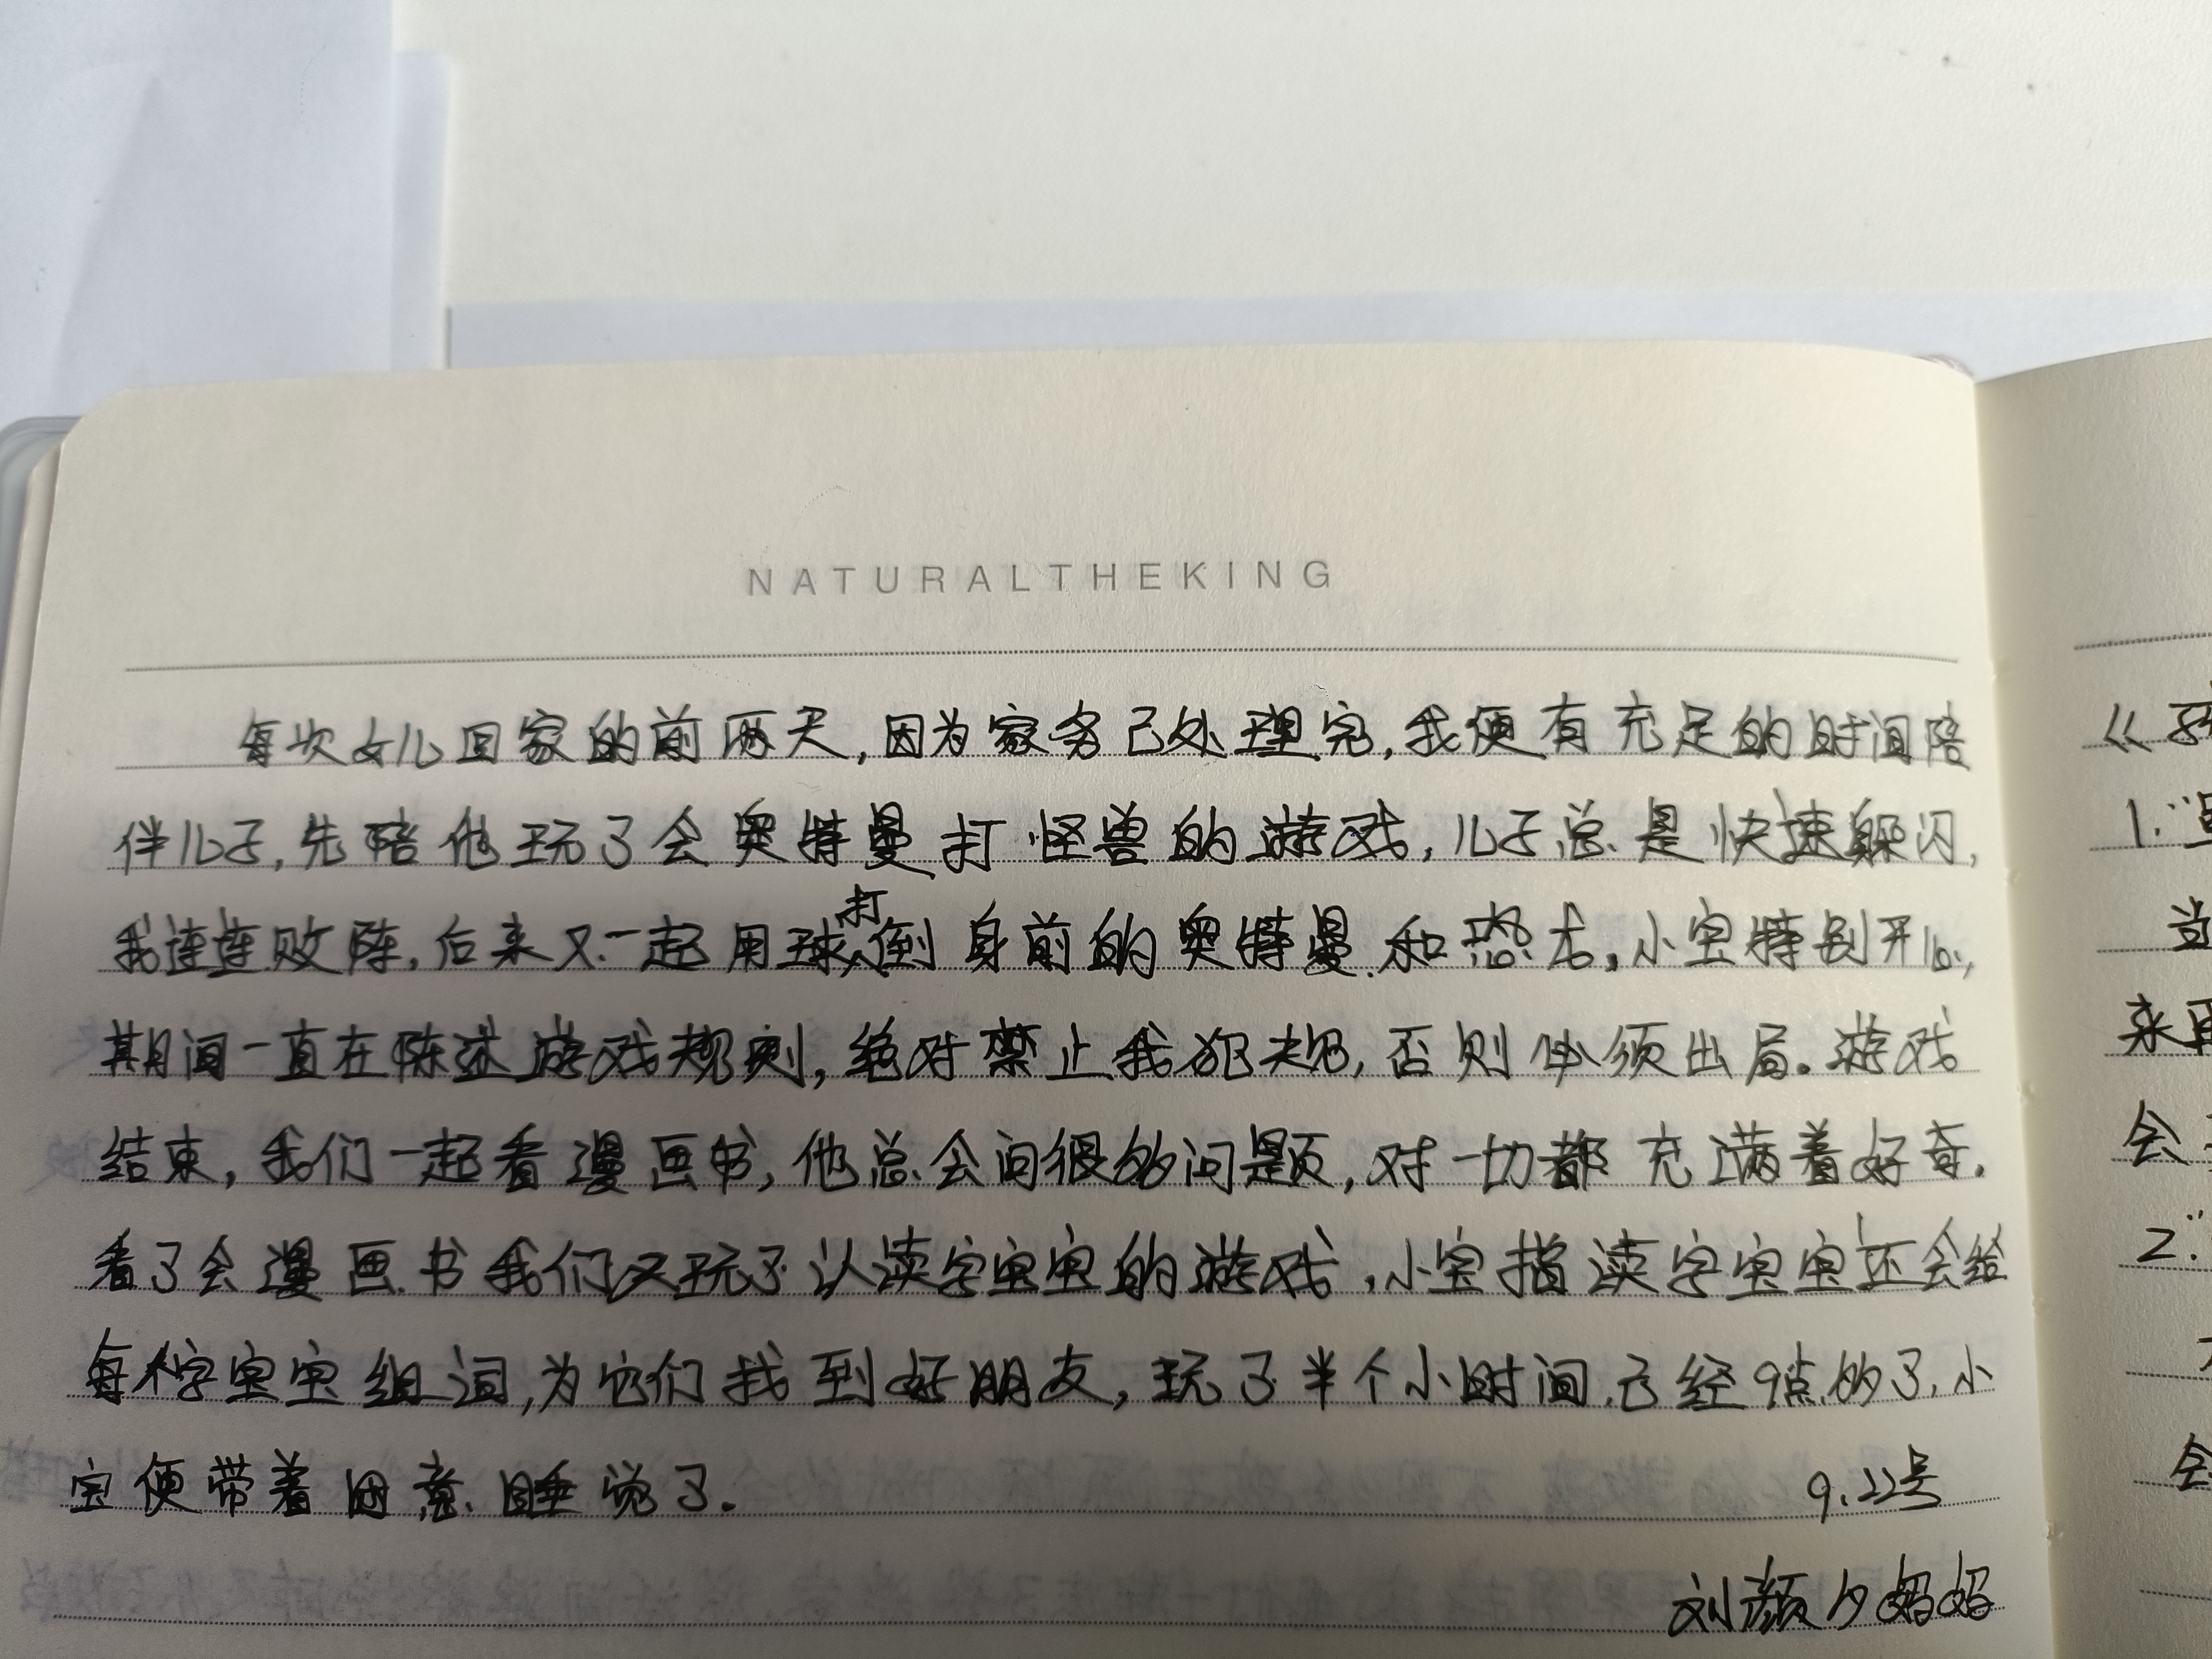 NATURALTHEKING
每次女儿回家的前两天,因为家务已处理完,我便有充足的时间陪
伴儿子,先陪他玩了会奥特曼打怪兽的游戏,儿子总是快速躲闪,
我连连败阵,后来又一起用球打倒身前的奥特曼和恐龙,小宝特别开心,
期间一直在陈述游戏规则,绝对禁止我犯规,否则必须出局。游戏
结束,我们一起看漫画书,他总会问很多问题,对一切都充满着好奇.
看了会漫画书我们又玩了认读字宝宝的游戏,小宝指读字宝宝还会给
每个字宝宝组词,为它们找到好朋友,玩了半个小时间,已经9点多了,小
宝便带着困意睡觉了.
9.22号
刘颜夕妈妈
《
1.
当
来再
会
2.
会